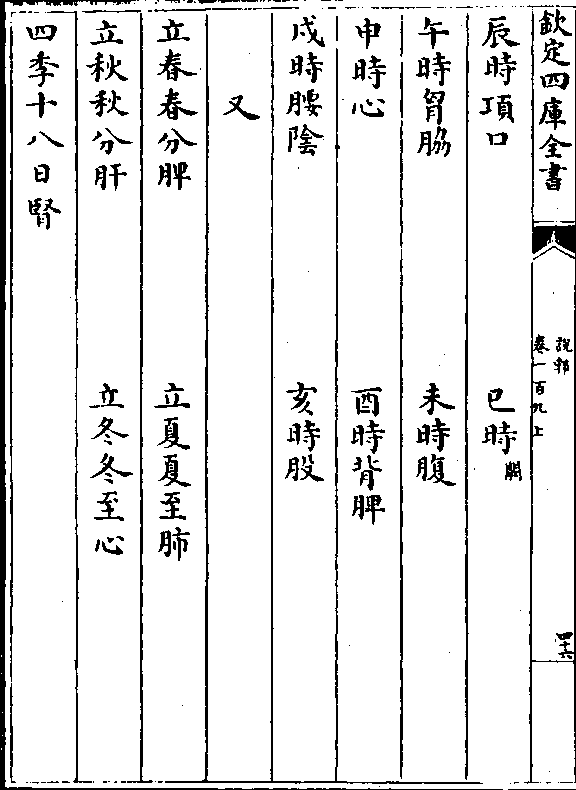 欽定四庫全書
說郛
卷一百九上
四十六
辰時項口　巳時闕
午時胷脇　未時腹
申時心　酉時背脾
戌時腰陰　亥時股
又
立春春分脾　立夏夏至肺
立秋秋分肝　立冬冬至心
四季十八日腎